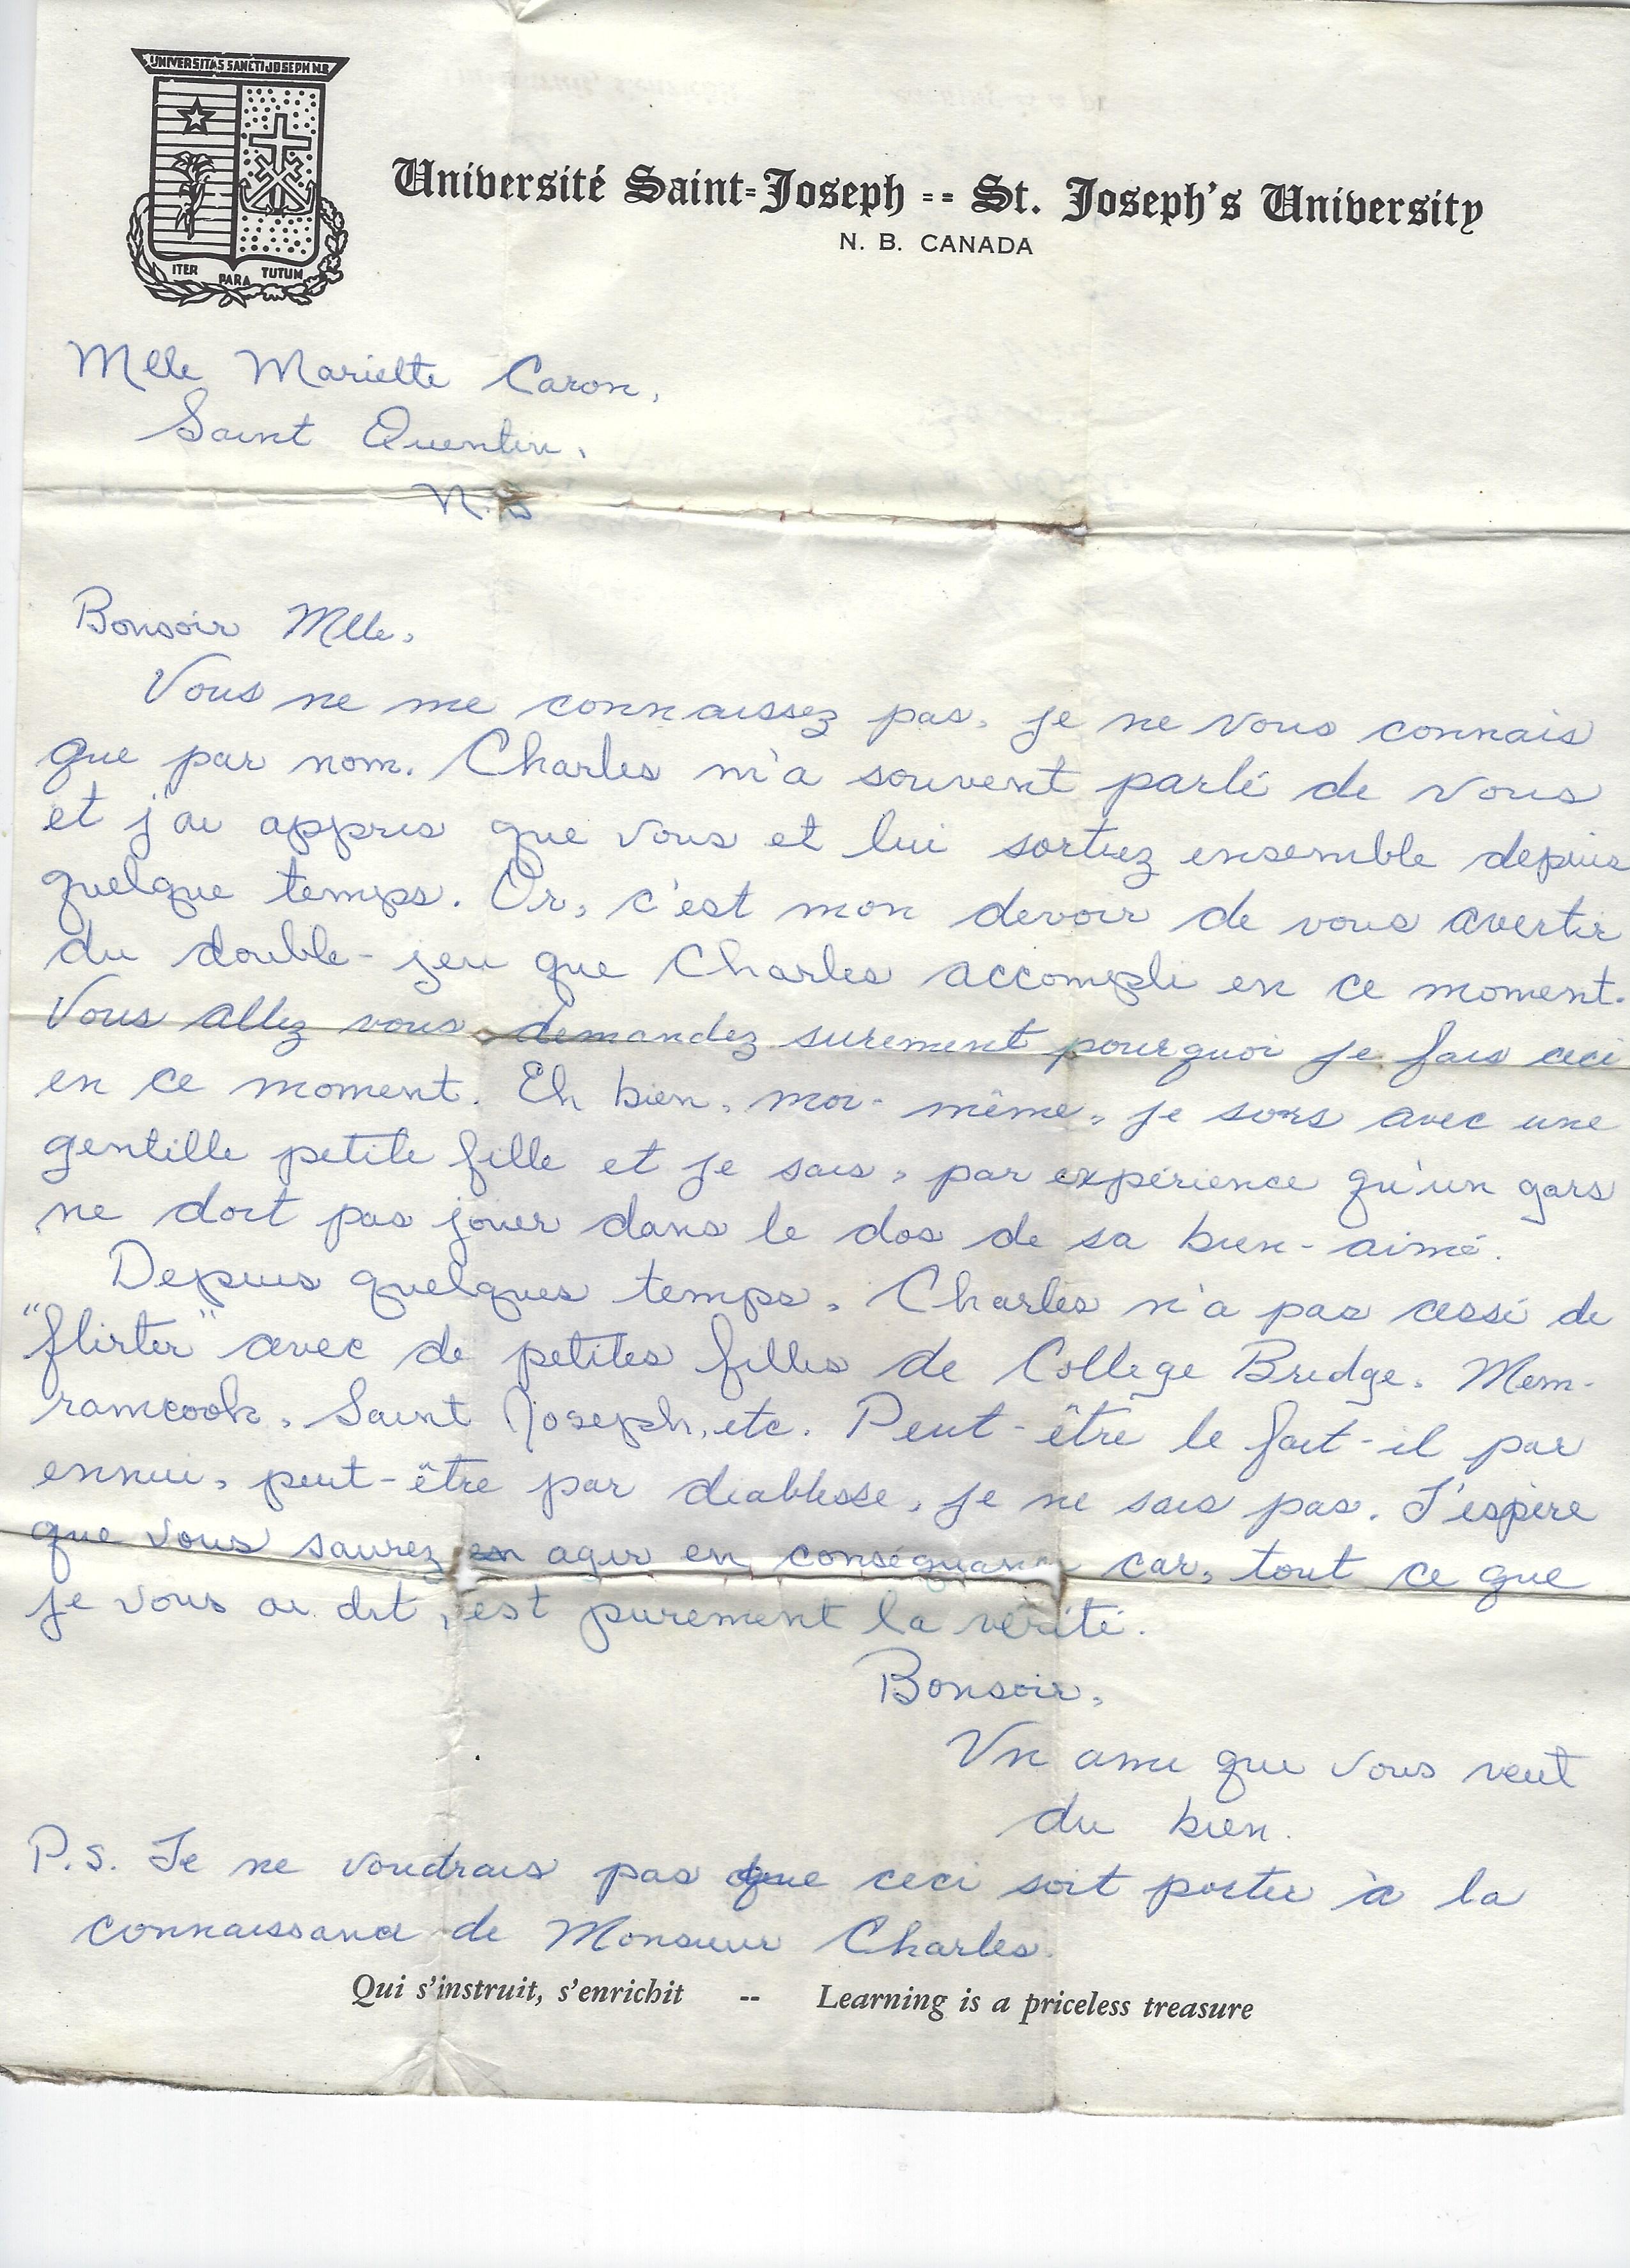 UNIVERSITAS SANCTI JOSEPH N.B.
ITER PARA TUTUM
Université Saint-Joseph -- St. Joseph's University
N. B. CANADA
Mlle Mariette Caron,
Saint Quentin,
N.B
Bonsoir Mlle,
Vous ne me connaissez pas, je ne vous connais
que par nom. Charles m'a souvent parlé de vous
et j'ai appris que vous et lui sortiez ensemble depuis
quelque temps. Or, c'est mon devoir de vous avertir
du double-jeu que Charles accompli en ce moment.
Vous allez vous demandez surement pourquoi je fais ceci
en ce moment. Eh bien, moi-même, je sors avec une
gentille petite fille et je sais, par expérience qu'un gars
ne doit pas jouer dans le dos de sa bien-aimé.
Depuis quelques temps, Charles n'a pas cessé de
"flirter" avec de petites filles de College Bridge, Mem-
ramcook, Saint Joseph, etc. Peut-être le fait-il par
ennui, peut-être par diablesse, je ne sais pas. J'espère
que vous saurez en agir en conséquance car, tout ce que
je vous ai dit, est purement la vérité.
Bonsoir,
Un ami qui vous veut
du bien.
P.S. Je ne voudrais pas que ceci soit portée à la
connaissance de Monsieur Charles.
Qui s'instruit, s'enrichit -- Learning is a priceless treasure